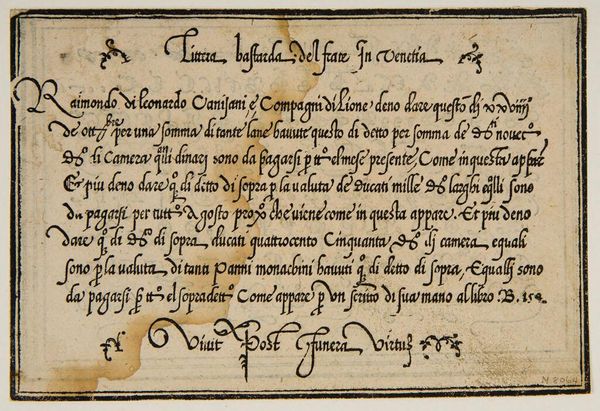 Littera bastarda del frate In Venetia
Raimondo di leonardo Canisani, e Compagni di Lione deno dare questo di xxviiij
de ott.bre per una somma di tante lane havute questo di detto per somma de d.ti novec.to
d.ti di Camera q.lli dinari sono da pagarsi p tt.o el mese presente, Come in questa appare
Et piu deno dare q.o di detto di sopra p la valuta de ducati mille d.ti larghi eq.lli sono
da pagarsi per tutt.o Agosto prox.o che viene come in questa appare. Et piu deno
dare q.o di d.to di sopra ducati quattrocento Cinquanta d.ti di camera, equali
sono p la valuta di tanti Panni monachini havuti q.o di detto di sopra, Et qualli sono
da pagarsi p tt.o el sopradett.o Come appare p un scritto di sua mano al libro .B. 154.
Vivit Post funera Virtus
N 8064